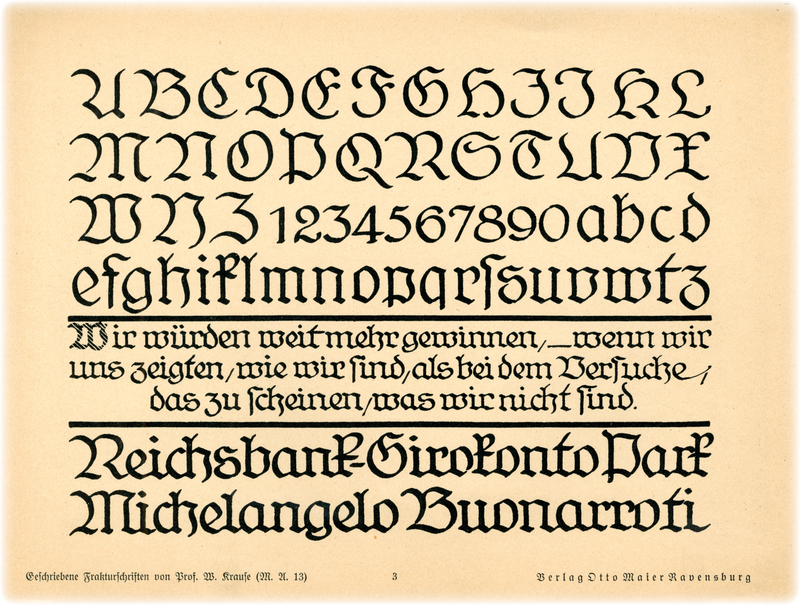 ABCDEFGHIJKL
MNOPQRSTUVX
WYZ 1234567890 abcd
efghiklmnopqrſsuvwtz
Wir würden weit mehr gewinnen, — wenn wir
uns zeigten, wie wir ſind, als bei dem Verſuche,
das zu ſcheinen, was wir nicht ſind.
Reichsbank-Girokonto Park
Michelangelo Buonarroti
Geſchriebene Frakturſchriften von Prof. W. Krauſe (M. A. 13) 3 Verlag Otto Maier Ravensburg